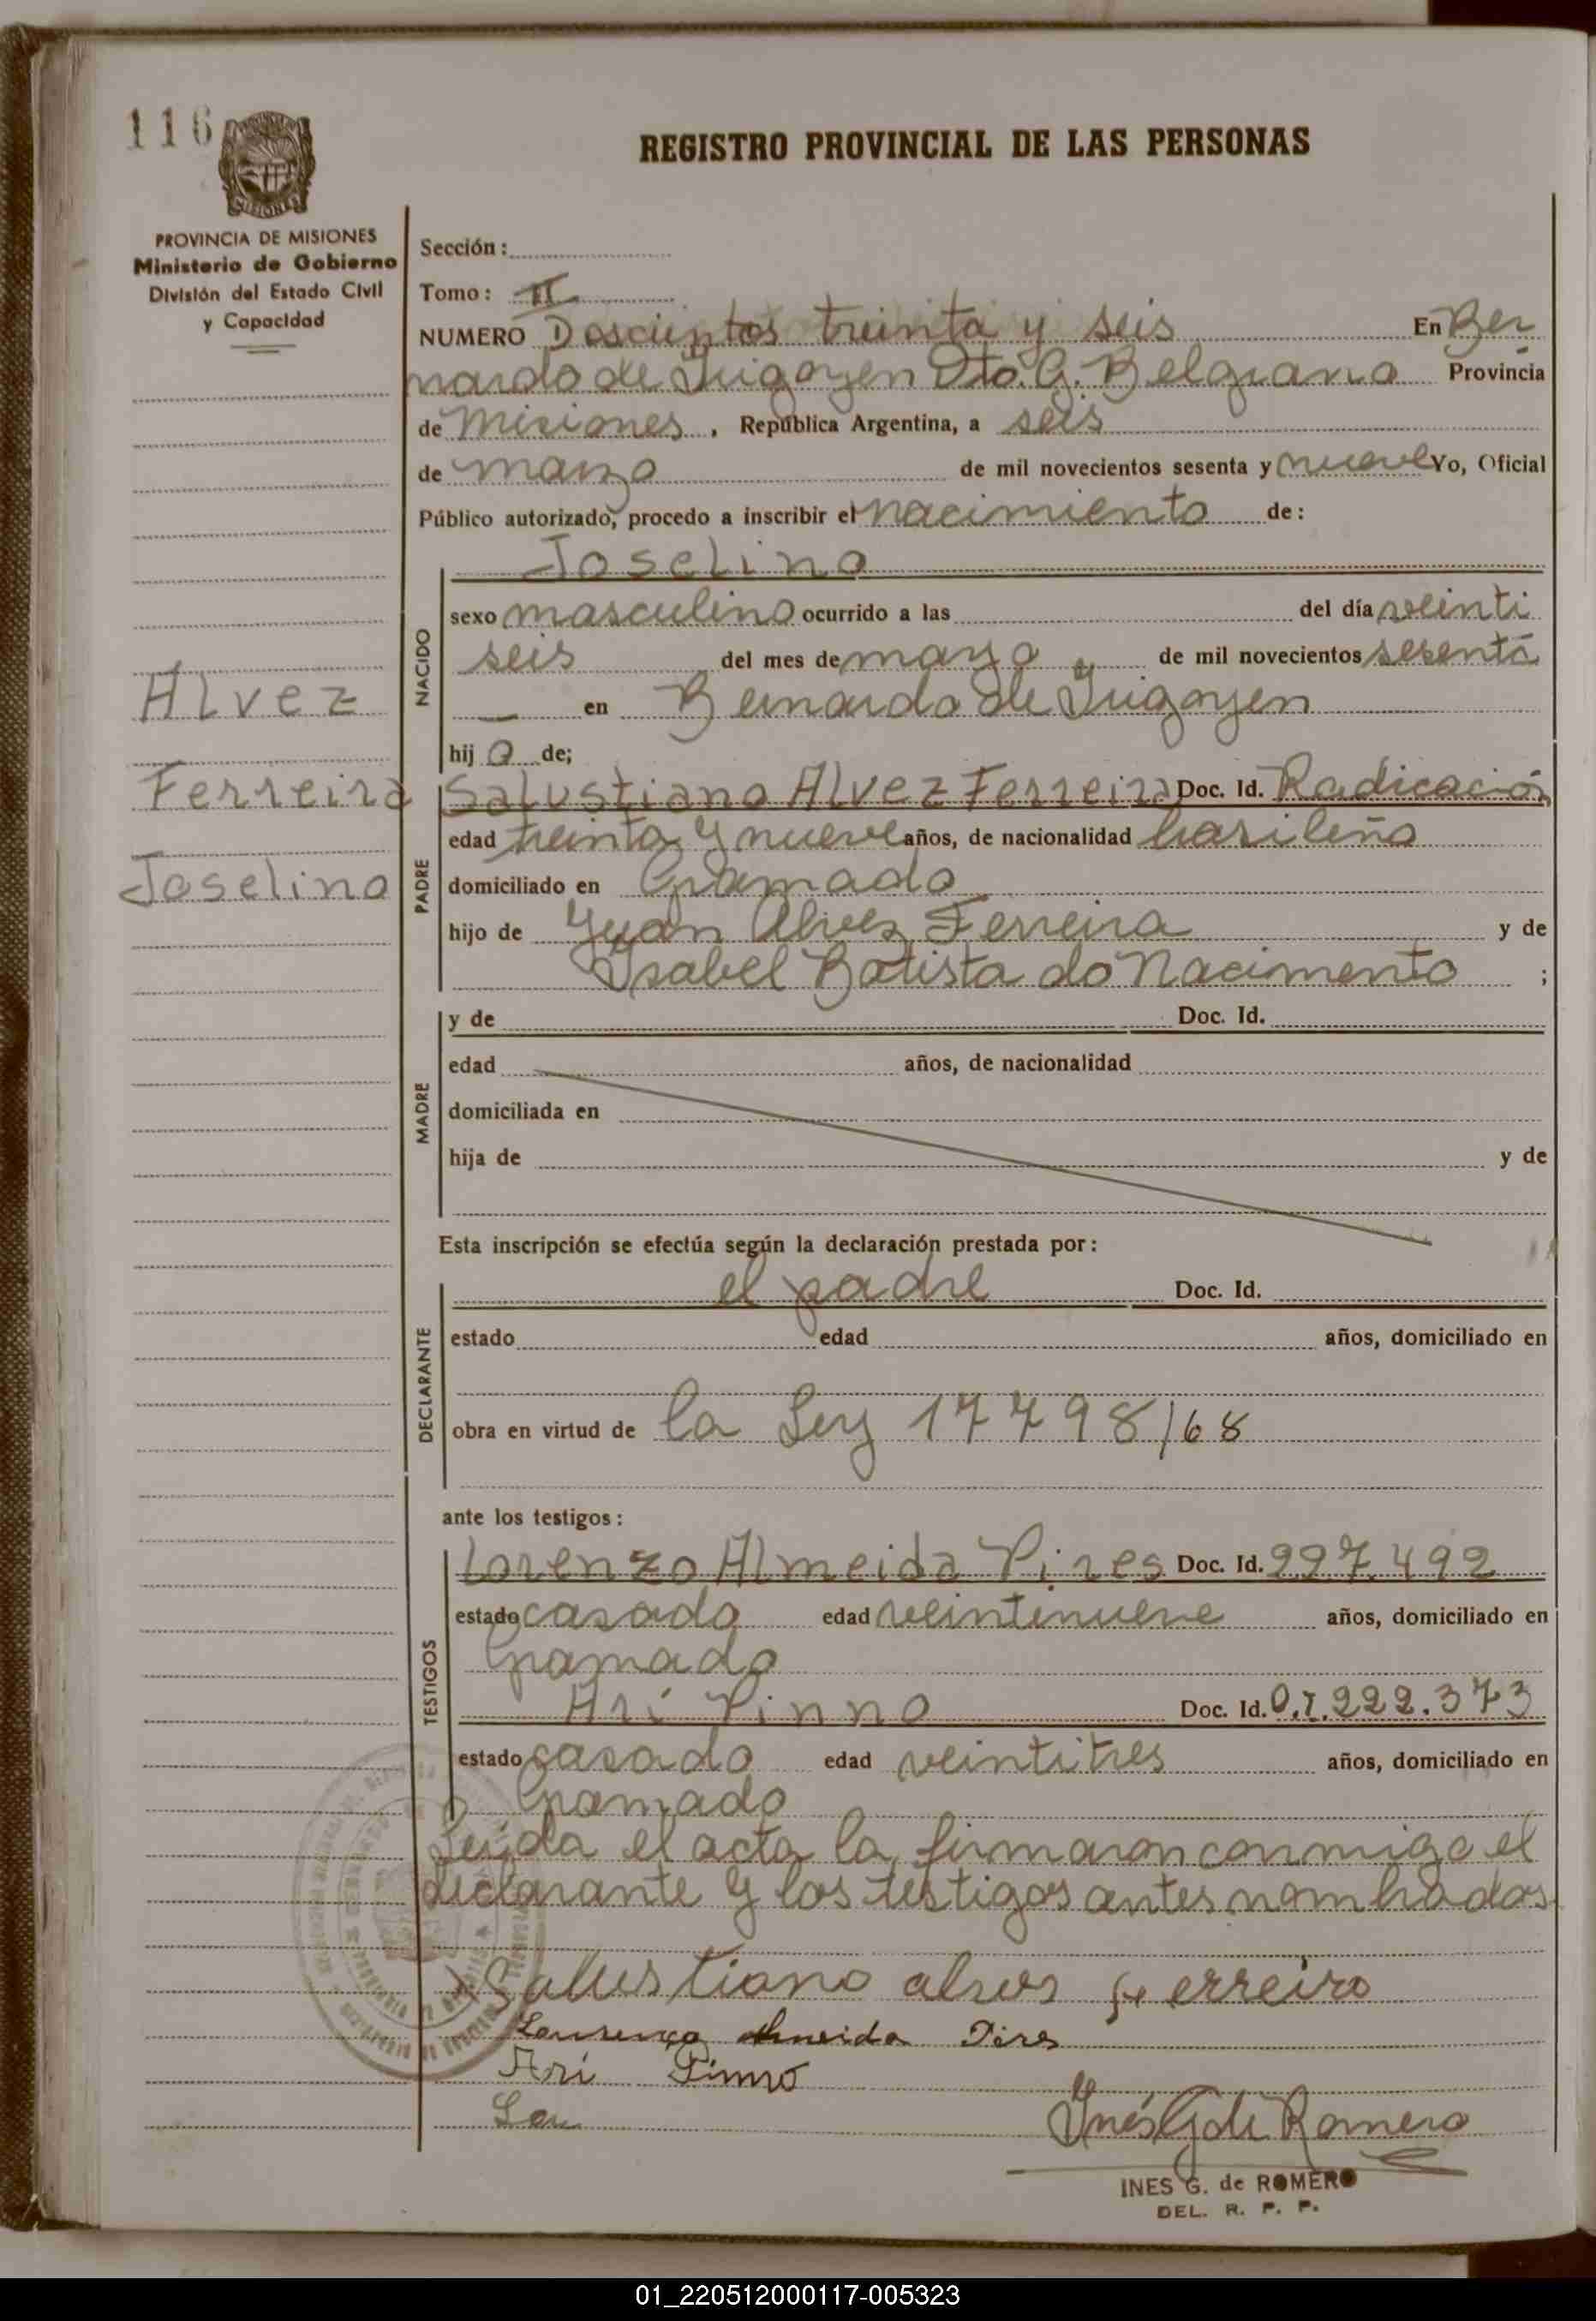 116
REGISTRO PROVINCIAL DE LAS PERSONAS
MISIONES
PROVINCIA DE MISIONES
Ministerio de Gobierno
División del Estado Civil
y Capacidad
Sección:
Tomo: II
NUMERO Doscientos treinta y seis En Ber
nardo de Irigoyen Dto. G. Belgrano Provincia
de Misiones, República Argentina, a seis
de marzo de mil novecientos sesenta y nueve Yo, Oficial
Público autorizado, procedo a inscribir el nacimiento de:
Joselino
NACIDO
sexo masculino ocurrido a las del día veinti
seis del mes de marzo de mil novecientos sesenta
— en Bernardo de Irigoyen
hijo de;
Alvez
Ferreira
Joselino
PADRE
Salustiano Alvez Ferreira Doc. Id. Radicación
edad treinta y nueve años, de nacionalidad brasileño
domiciliado en Gramado
hijo de Juan Alvez Ferreira y de
Isabel Batista do Nacimento ;
MADRE
y de Doc. Id.
edad años, de nacionalidad
domiciliada en
hija de y de
Esta inscripción se efectúa según la declaración prestada por:
DECLARANTE
el padre Doc. Id.
estado edad años, domiciliado en
obra en virtud de la Ley 17798/68
ante los testigos:
TESTIGOS
Lorenzo Almeida Pires Doc. Id. 997.492
estado casado edad veintinueve años, domiciliado en
Gramado
Arí Pinno Doc. Id. 0.I.222.373
estado casado edad veintitres años, domiciliado en
Gramado
Leida el acta la firmaron conmigo el
declarante y los testigos antes nombrados.
Salustiano alves ferreiro
Lourenço Almeida Pires
Arí Pinno
Lou
Inés G de Romero
INES G. de ROMERO
DEL. R. P. P.
01_220512000117-005323